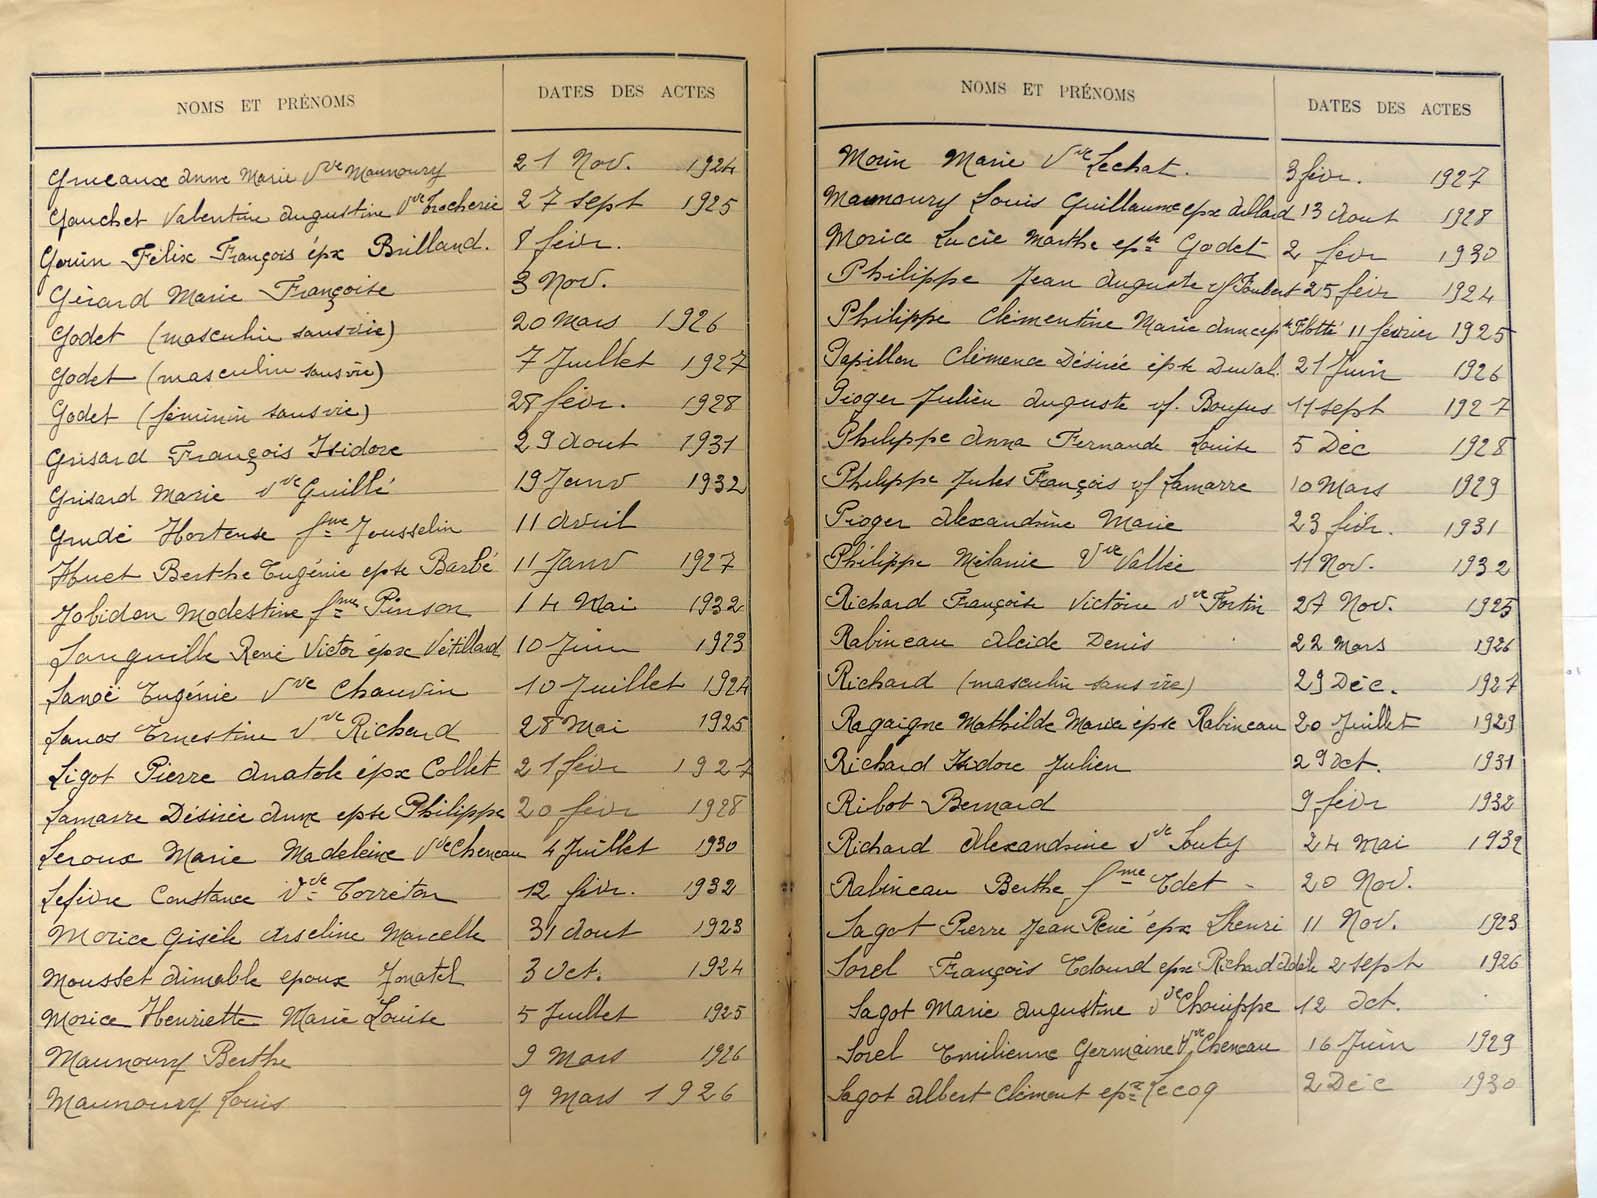 NOMS ET PRÉNOMS DATES DES ACTES
Grueaux Anne Marie Vve Maunoury 21 Nov. 1924
Gauchet Valentine Augustine Vve Trocherie 27 sept 1925
Gouin Félix François épx Brilland. 8 févr.
Gérard Marie Françoise 3 Nov.
Godet (masculin sans vie) 20 Mars 1926
Godet (masculin sans vie) 7 Juillet 1927
Godet (féminin sans vie) 28 févr. 1928
Grisard François Isidore 29 Aout 1931
Grisard Marie Vve Guillé 19 Janv 1932
Grudé Hortense fme Jousselin 11 Avril
Huet Berthe Eugénie epse Barbé 11 Janv 1927
Jobidon Modestine fme Pinson 14 Mai 1932
Languille René Victor épx Vétillard 10 Juin 1923
Lanoë Eugénie Vve Chauvin 10 Juillet 1924
Lanos Ernestine Vve Richard 28 Mai 1925
Ligot Pierre Anatole épx Collet 21 févr 1927
Lamarre Désirée Anne epse Philippe 20 févr 1928
Leroux Marie Madeleine Vve Cheneau 4 Juillet 1930
Lefèvre Constance Vve Torreton 12 févr. 1932
Morice Gisèle Arseline Marcelle 31 Aout 1923
Mousset Aimable epoux Jonatel 3 Oct. 1924
Morice Henriette Marie Louise 5 Juillet 1925
Maunoury Berthe 9 Mars 1926
Maunoury Louis 9 Mars 1926
NOMS ET PRÉNOMS DATES DES ACTES
Morin Marie Vve Lechat. 3 févr. 1927
Maunoury Louis Guillaume epx Allard 13 Aout 1928
Morice Lucie Marthe epse Godet 2 févr 1930
Philippe Jean Auguste vf Foubert 25 févr 1924
Philippe Clémentine Marie Anne epse Flotté 11 février 1925
Papillon Clémence Désirée épse Duval. 21 Juin 1926
Pioger Julien Auguste vf. Boufus 11 sept 1927
Philippe Anna Fernande Louise 5 Déc 1928
Philippe Jules François vf Lamarre 10 Mars 1929
Pioger Alexandrine Marie 23 févr. 1931
Philippe Mélanie Vve Vallée 11 Nov. 1932
Richard Françoise Victoire Vve Fortin 27 Nov. 1925
Rabineau Alcide Denis 22 Mars 1926
Richard (masculin sans vie) 29 Déc. 1927
Ragaigne Mathilde Maria épse Rabineau 20 Juillet 1929
Richard Isidore Julien 29 Oct. 1931
Ribot Bernard 9 févr 1932
Richard Alexandrine Vve Souty 24 Mai 1932
Rabineau Berthe fme Edet 20 Nov.
Sagot Pierre Jean René épx Lhenri 11 Nov. 1923
Sorel François Edouard epx Richard Adèle 2 sept 1926
Sagot Marie Augustine Vve Chouippe 12 Oct.
Sorel Emilienne Germaine Vve Cheneau 16 Juin 1929
Sagot Albert Clément epx Lecoq 2 Déc 1930